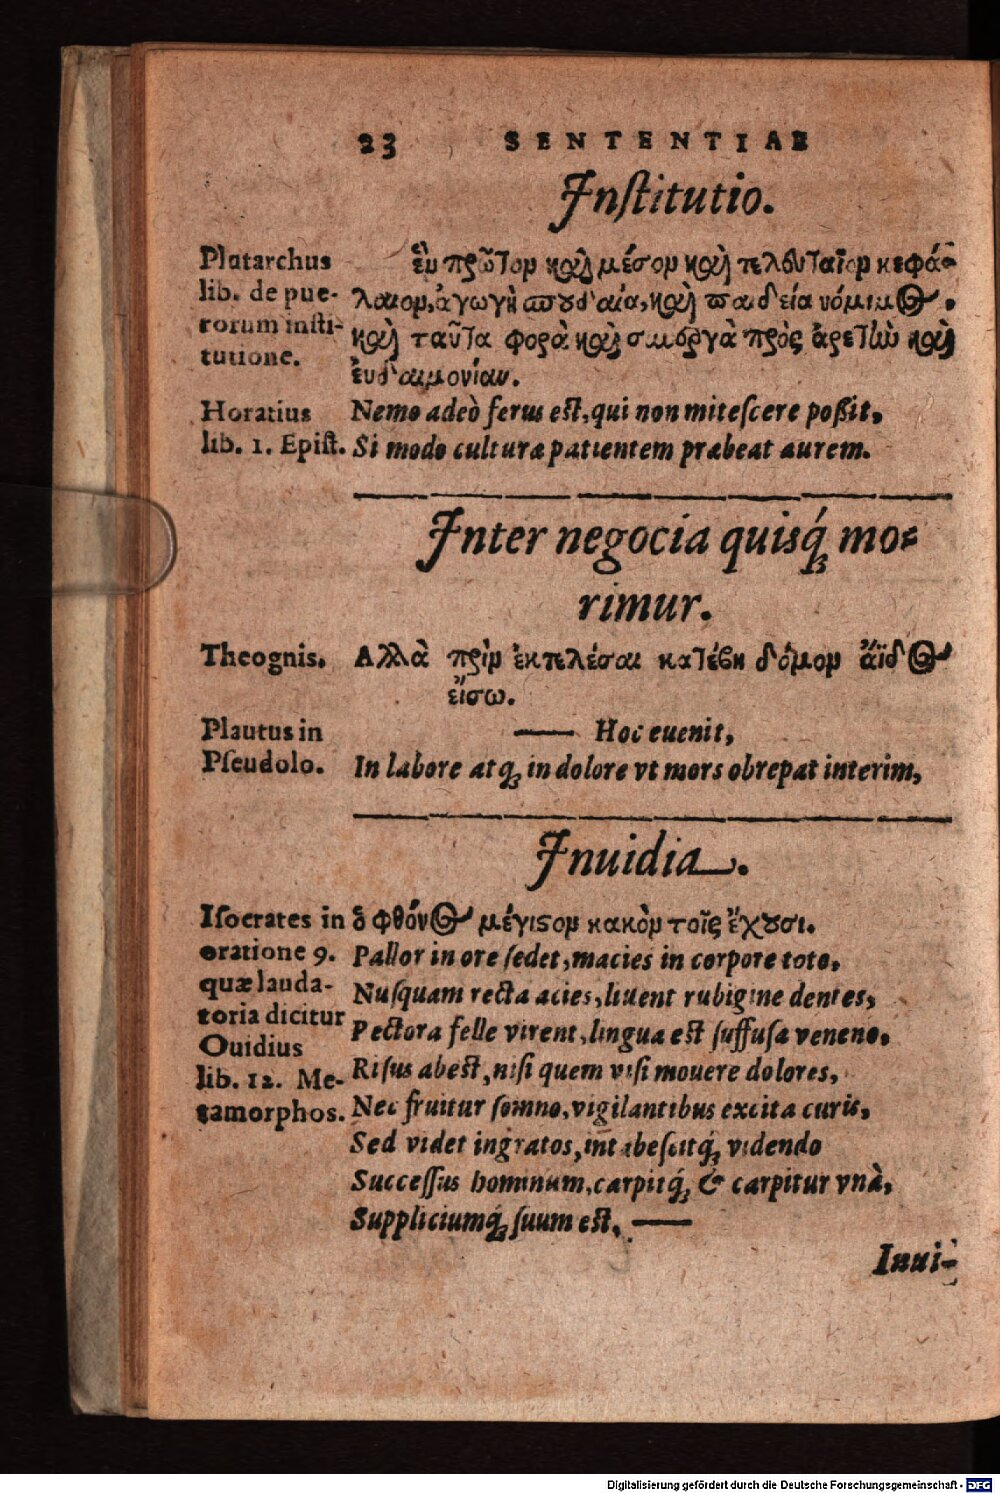 23 SENTENTIAE
Institutio.
Plutarchus
lib. de pue-
rorum insti-
tutione.
ἓν πρῶτον καὶ μέσον καὶ τελευταῖον κεφά-
λαιον, ἀγωγὴ σπουδαία, καὶ παιδεία νόμιμος.
καὶ ταῦτα φορὰ καὶ συνεργὰ πρὸς ἀρετὴν καὶ
ἐυδαιμονίαν.
Horatius
lib. 1. Epist.
Nemo adeò ferus est, qui non mitescere poßit,
Si modo culturæ patientem præbeat aurem.
Inter negocia quisq́; mo-
rimur.
Theognis.
Αλλὰ πρὶν ἐκτελέσαι κατέβη δόμον ἄϊδος
εἴσω.
Plautus in
Pseudolo.
—— Hoc euenit,
In labore atq; in dolore vt mors obrepat interim,
Inuidia.
Isocrates in
oratione 9.
quæ lauda-
toria dicitur
ὁ φθόνος μέγιστον κακὸν τοῖς ἔχουσι.
Ouidius
lib. 12. Me-
tamorphos.
Pallor in ore sedet, macies in corpore toto,
Nusquam recta acies, liuent rubigine dentes,
Pectora felle virent, lingua est suffusa veneno.
Risus abest, nisi quem visi mouere dolores,
Nec fruitur somno, vigilantibus excita curis,
Sed videt ingratos, intabescitq́; videndo
Successus hominum, carpitq́; & carpitur vnà,
Suppliciumq́; suum est. ——
Inui-
Digitalisierung gefördert durch die Deutsche Forschungsgemeinschaft - DFG